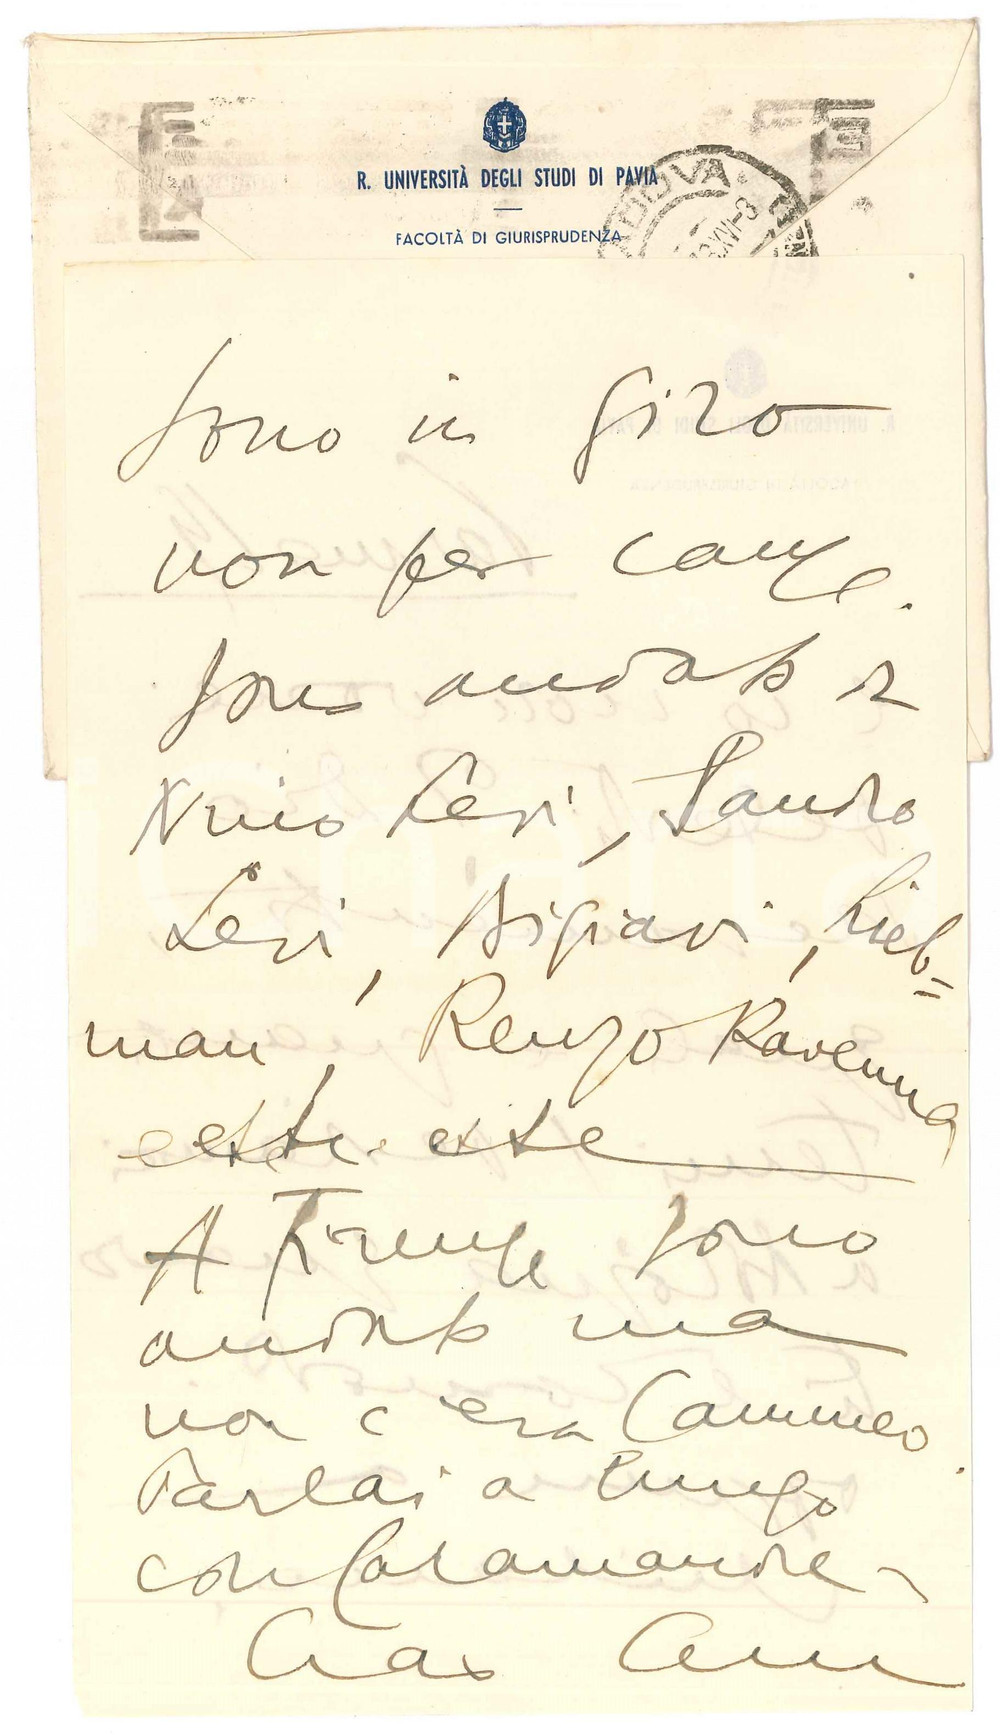 R. UNIVERSITÀ DEGLI STUDI DI PAVIA
FACOLTÀ DI GIURISPRUDENZA
PADOVA
Sono in giro
non per
Sono andato da
Nino Levi, Sandro
Levi, Bigiavi, Lieb=
man, Renzo Ravenna
A Firenze sono
andato ma
non c'era Cammeo
Parlai a lungo
con Calamandrei
Ciao